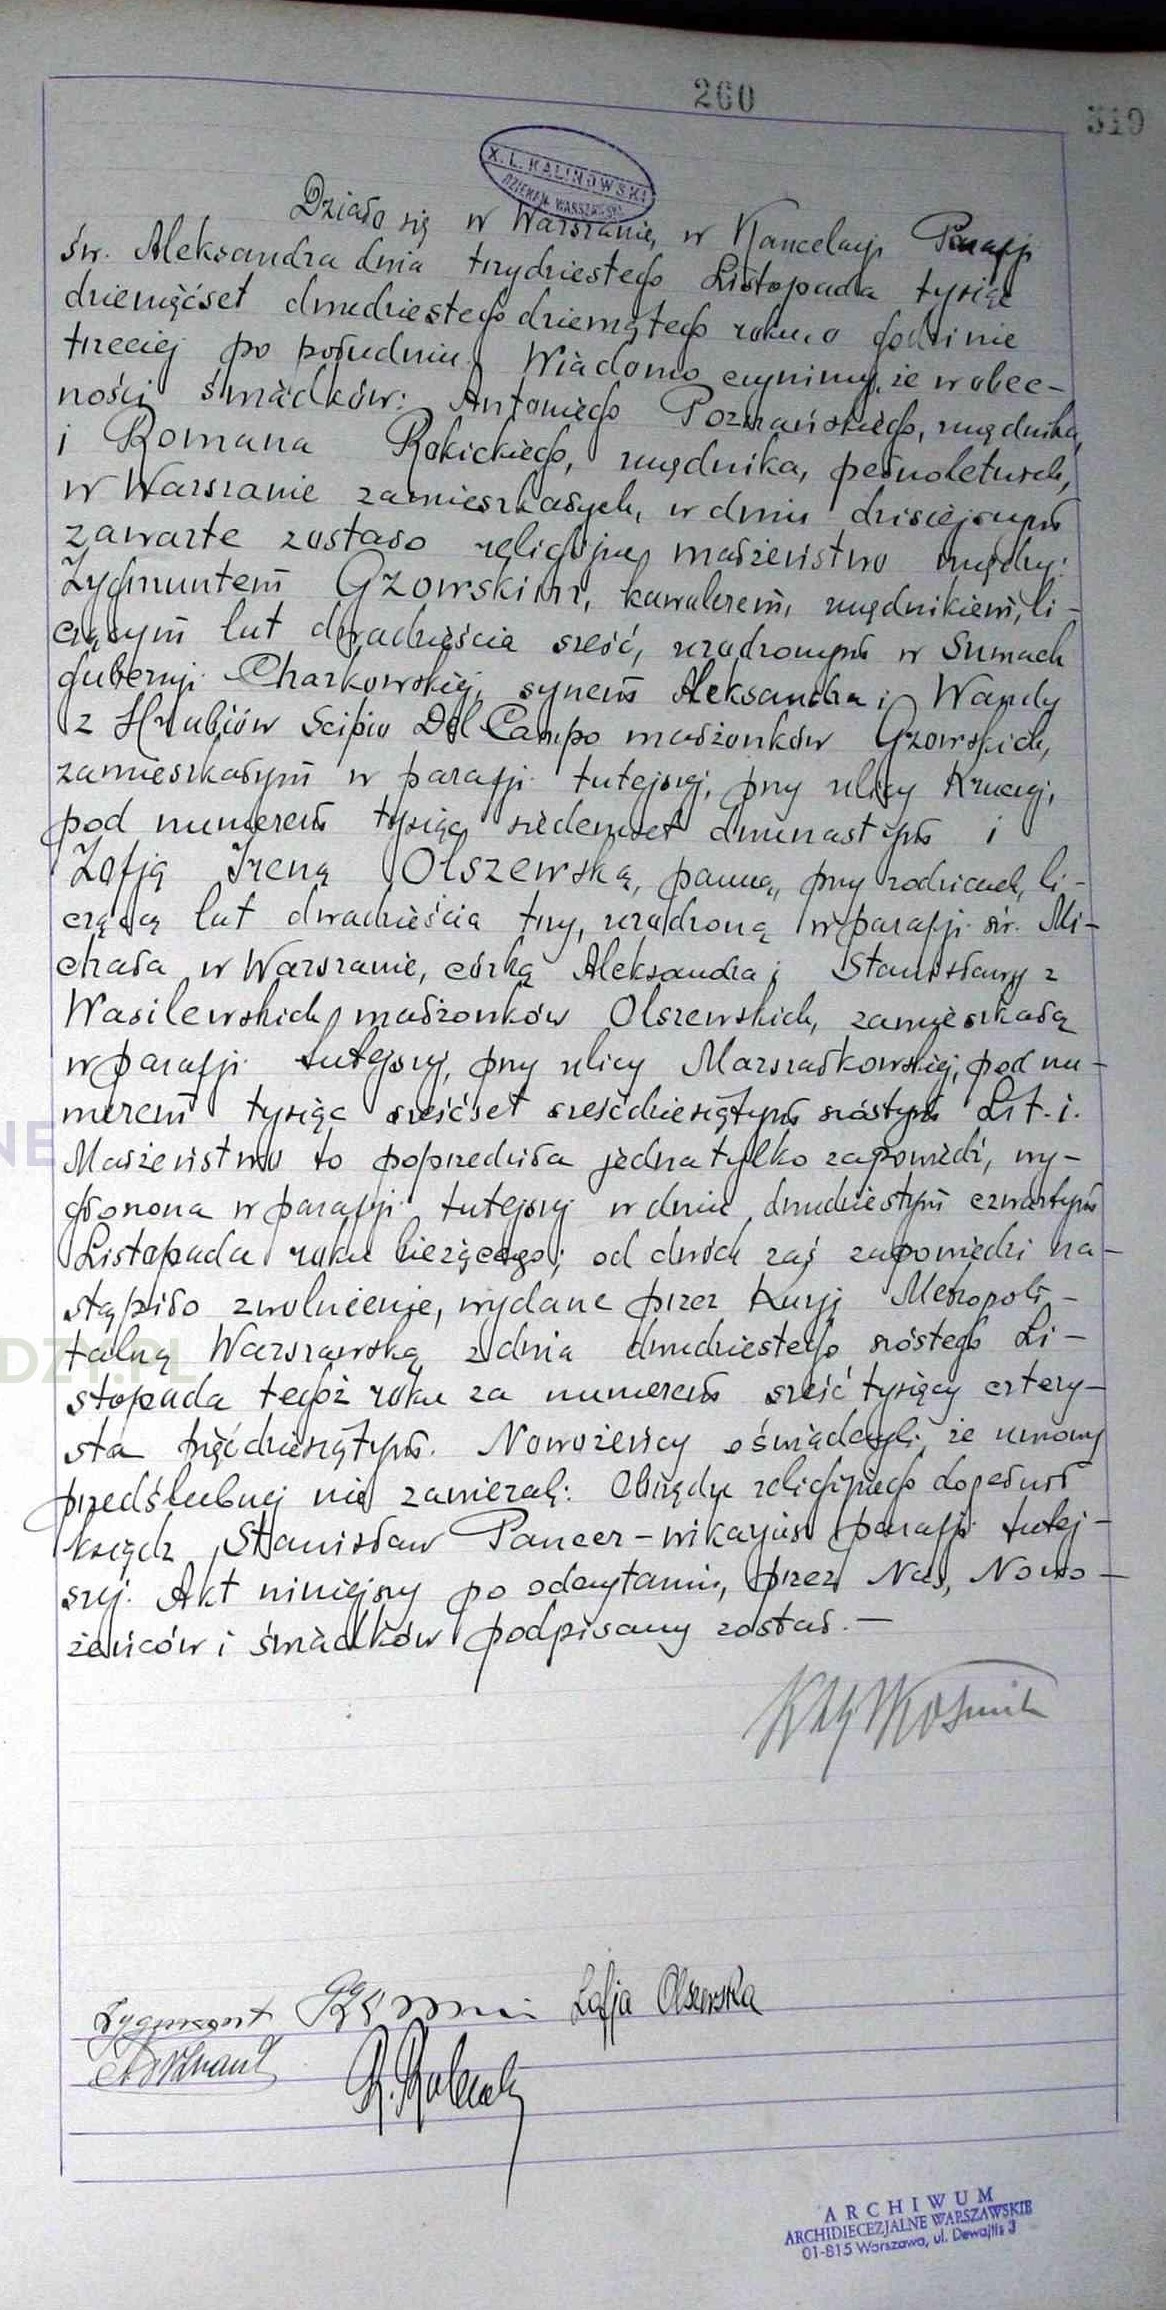 260
319
X. L. KALINOWSKI
DZIEKAN WARSZAWSKI
Działo się w Warszawie, w Kancelarji Parafji
św. Aleksandra dnia trzydziestego Listopada tysiąc
dziewięćset dwudziestego dziewiątego roku o godzinie
trzeciej po południu. Wiadomo czynimy, że w obec-
ności świadków: Antoniego Poznańskiego, urzędnika,
i Romana Rokickiego, urzędnika, pełnoletnich,
w Warszawie zamieszkałych, w dniu dzisiejszym
zawarte zostało religijne małżeństwo między:
Zygmuntem Gzowskim, kawalerem, urzędnikiem, li-
czącym lat dwadzieścia sześć, urodzonym w Sumach
gubernji Charkowskiej, synem Aleksandra i Wandy
z Hrabiów Scipio Del Campo małżonków Gzowskich,
zamieszkałym w parafji tutejszej, przy ulicy Kruczej,
pod numerem tysiąc siedemset dwunastym i
Zofją Ireną Olszewską, panną, przy rodzicach, li-
czącą lat dwadzieścia trzy, urodzoną w parafji św. Mi-
chała w Warszawie, córką Aleksandra i Stanisławy z
Wasilewskich małżonków Olszewskich, zamieszkałą
w parafji tutejszej, przy ulicy Marszałkowskiej, pod nu-
merem tysiąc sześćset sześćdziesiątym szóstym Lit. i.
Małżeństwo to poprzedziła jedna tylko zapowiedź, wy-
głoszona w parafji tutejszej w dniu dwudziestym czwartym
Listopada roku bieżącego; od dwóch zaś zapowiedzi na-
stąpiło zwolnienie, wydane przez Kurję Metropoli-
talną Warszawską z dnia dwudziestego szóstego Li-
stopada tegoż roku za numerem sześć tysięcy cztery-
sta pięćdziesiątym. Nowożeńcy oświadczyli, że umowy
przedślubnej nie zawierali. Obrzędu religijnego dopełnił
ksiądz Stanisław Pancer - wikarjusz parafji tutej-
szej. Akt niniejszy po odczytaniu, przez Nas, Nowo-
żeńców i świadków podpisany został. —
Zygmunt Gzowski Zofja Olszewska
R. Rokicki
ARCHIWUM
ARCHIDIECEZJALNE WARSZAWSKIE
01-815 Warszawa, ul. Dewajtis 3